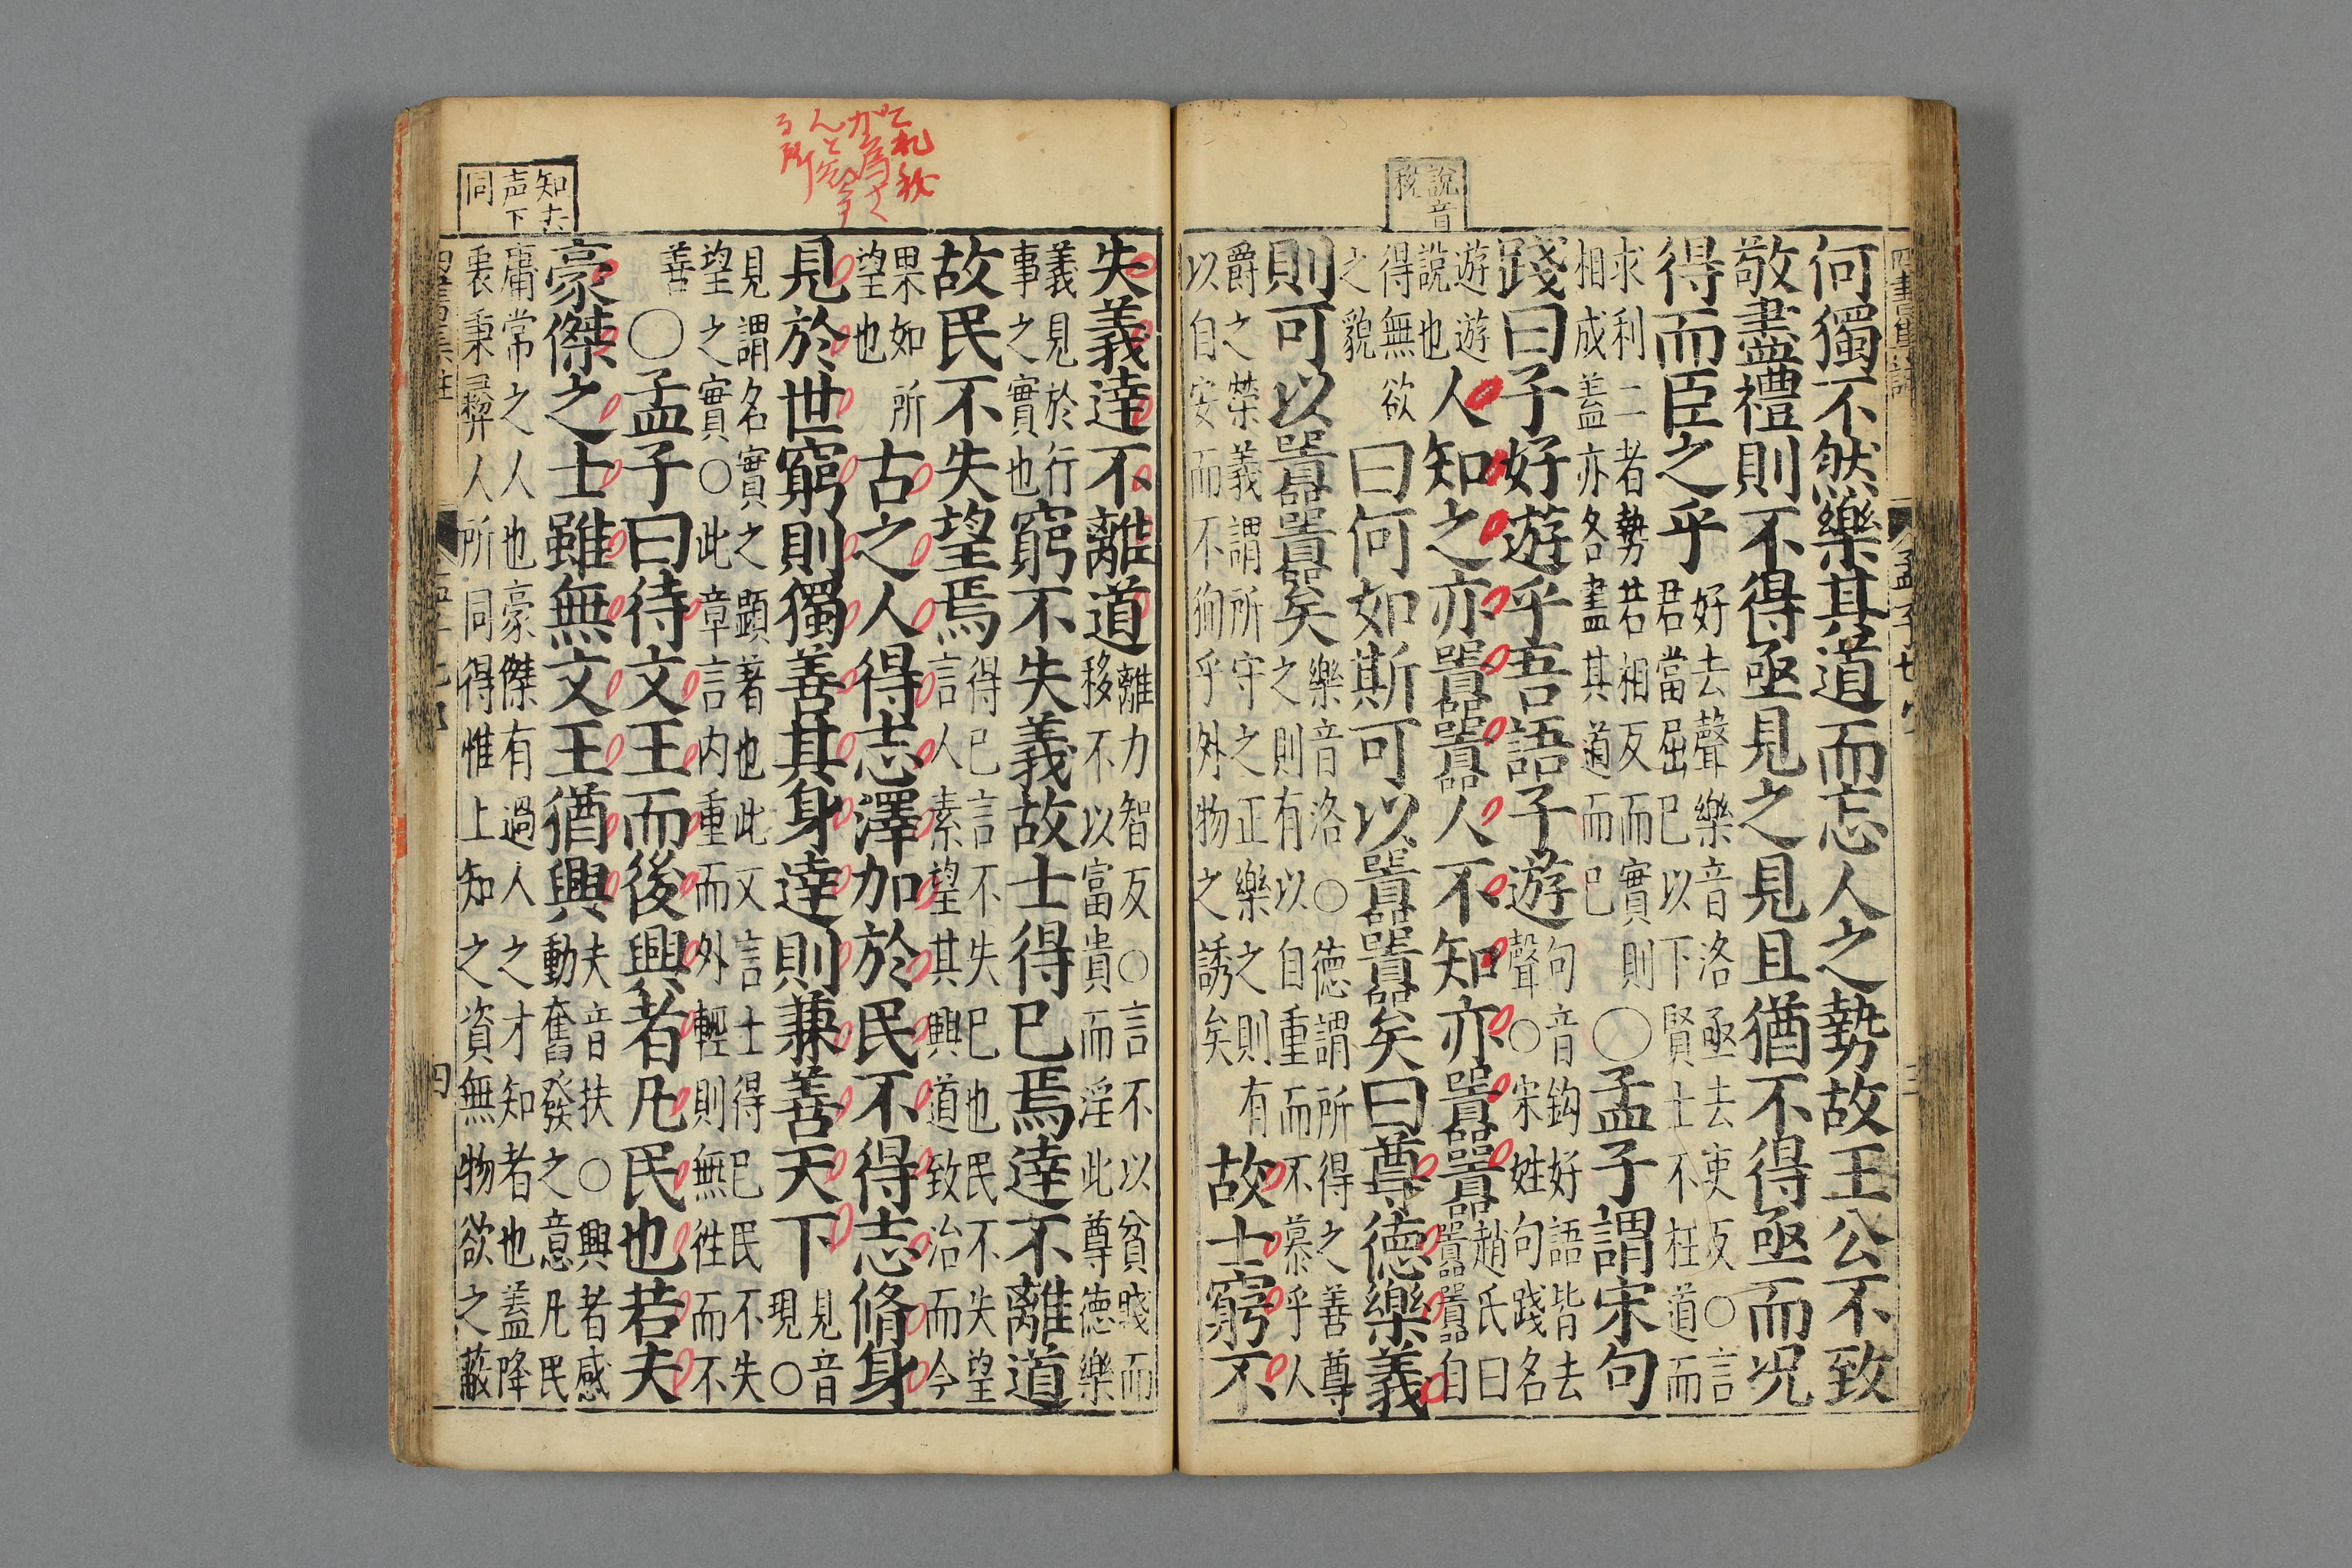 說音
稅
何獨不然樂其道而忘人之勢故王公不致
敬盡禮則不得亟見之見且猶不得亟而况
得而臣之乎好去聲樂音洛亟去吏反○言君當屈已以下賢士不枉道而
求利二者勢若相反而實則相成盖亦各盡其道而已○孟子謂宋句
踐曰子好遊乎吾語子遊句音鈎好語皆去聲○宋姓句踐名
遊遊說也人知之亦囂囂人不知亦囂囂趙氏曰囂囂自
得無欲之貌曰何如斯可以囂囂矣曰尊德樂義
則可以囂囂矣樂音洛○德謂所得之善尊之則有以自重而不慕乎人
爵之榮義謂所守之正樂之則有以自安而不狥乎外物之誘矣故士窮不
失義達不離道離力智反○言不以貧賤而移不以富貴而淫此尊德樂
義見於行事之實也窮不失義故士得已焉達不離道
故民不失望焉得已言不失已也民不失望言人素望其興道致治而今
果如所望也古之人得志澤加於民不得志脩身
見於世窮則獨善其身達則兼善天下見音現○
見謂名實之顯著也此又言士得已民不失望之實○此章言内重而外輕則無徃而不
善○孟子曰待文王而後興者凡民也若夫
豪傑之士雖無文王猶興夫音扶○興者感動奮發之意凡民
庸常之人也豪傑有過人之才知者也盖降衷秉彞人所同得惟上知之資無物欲之蔽
知去
声下
同
四